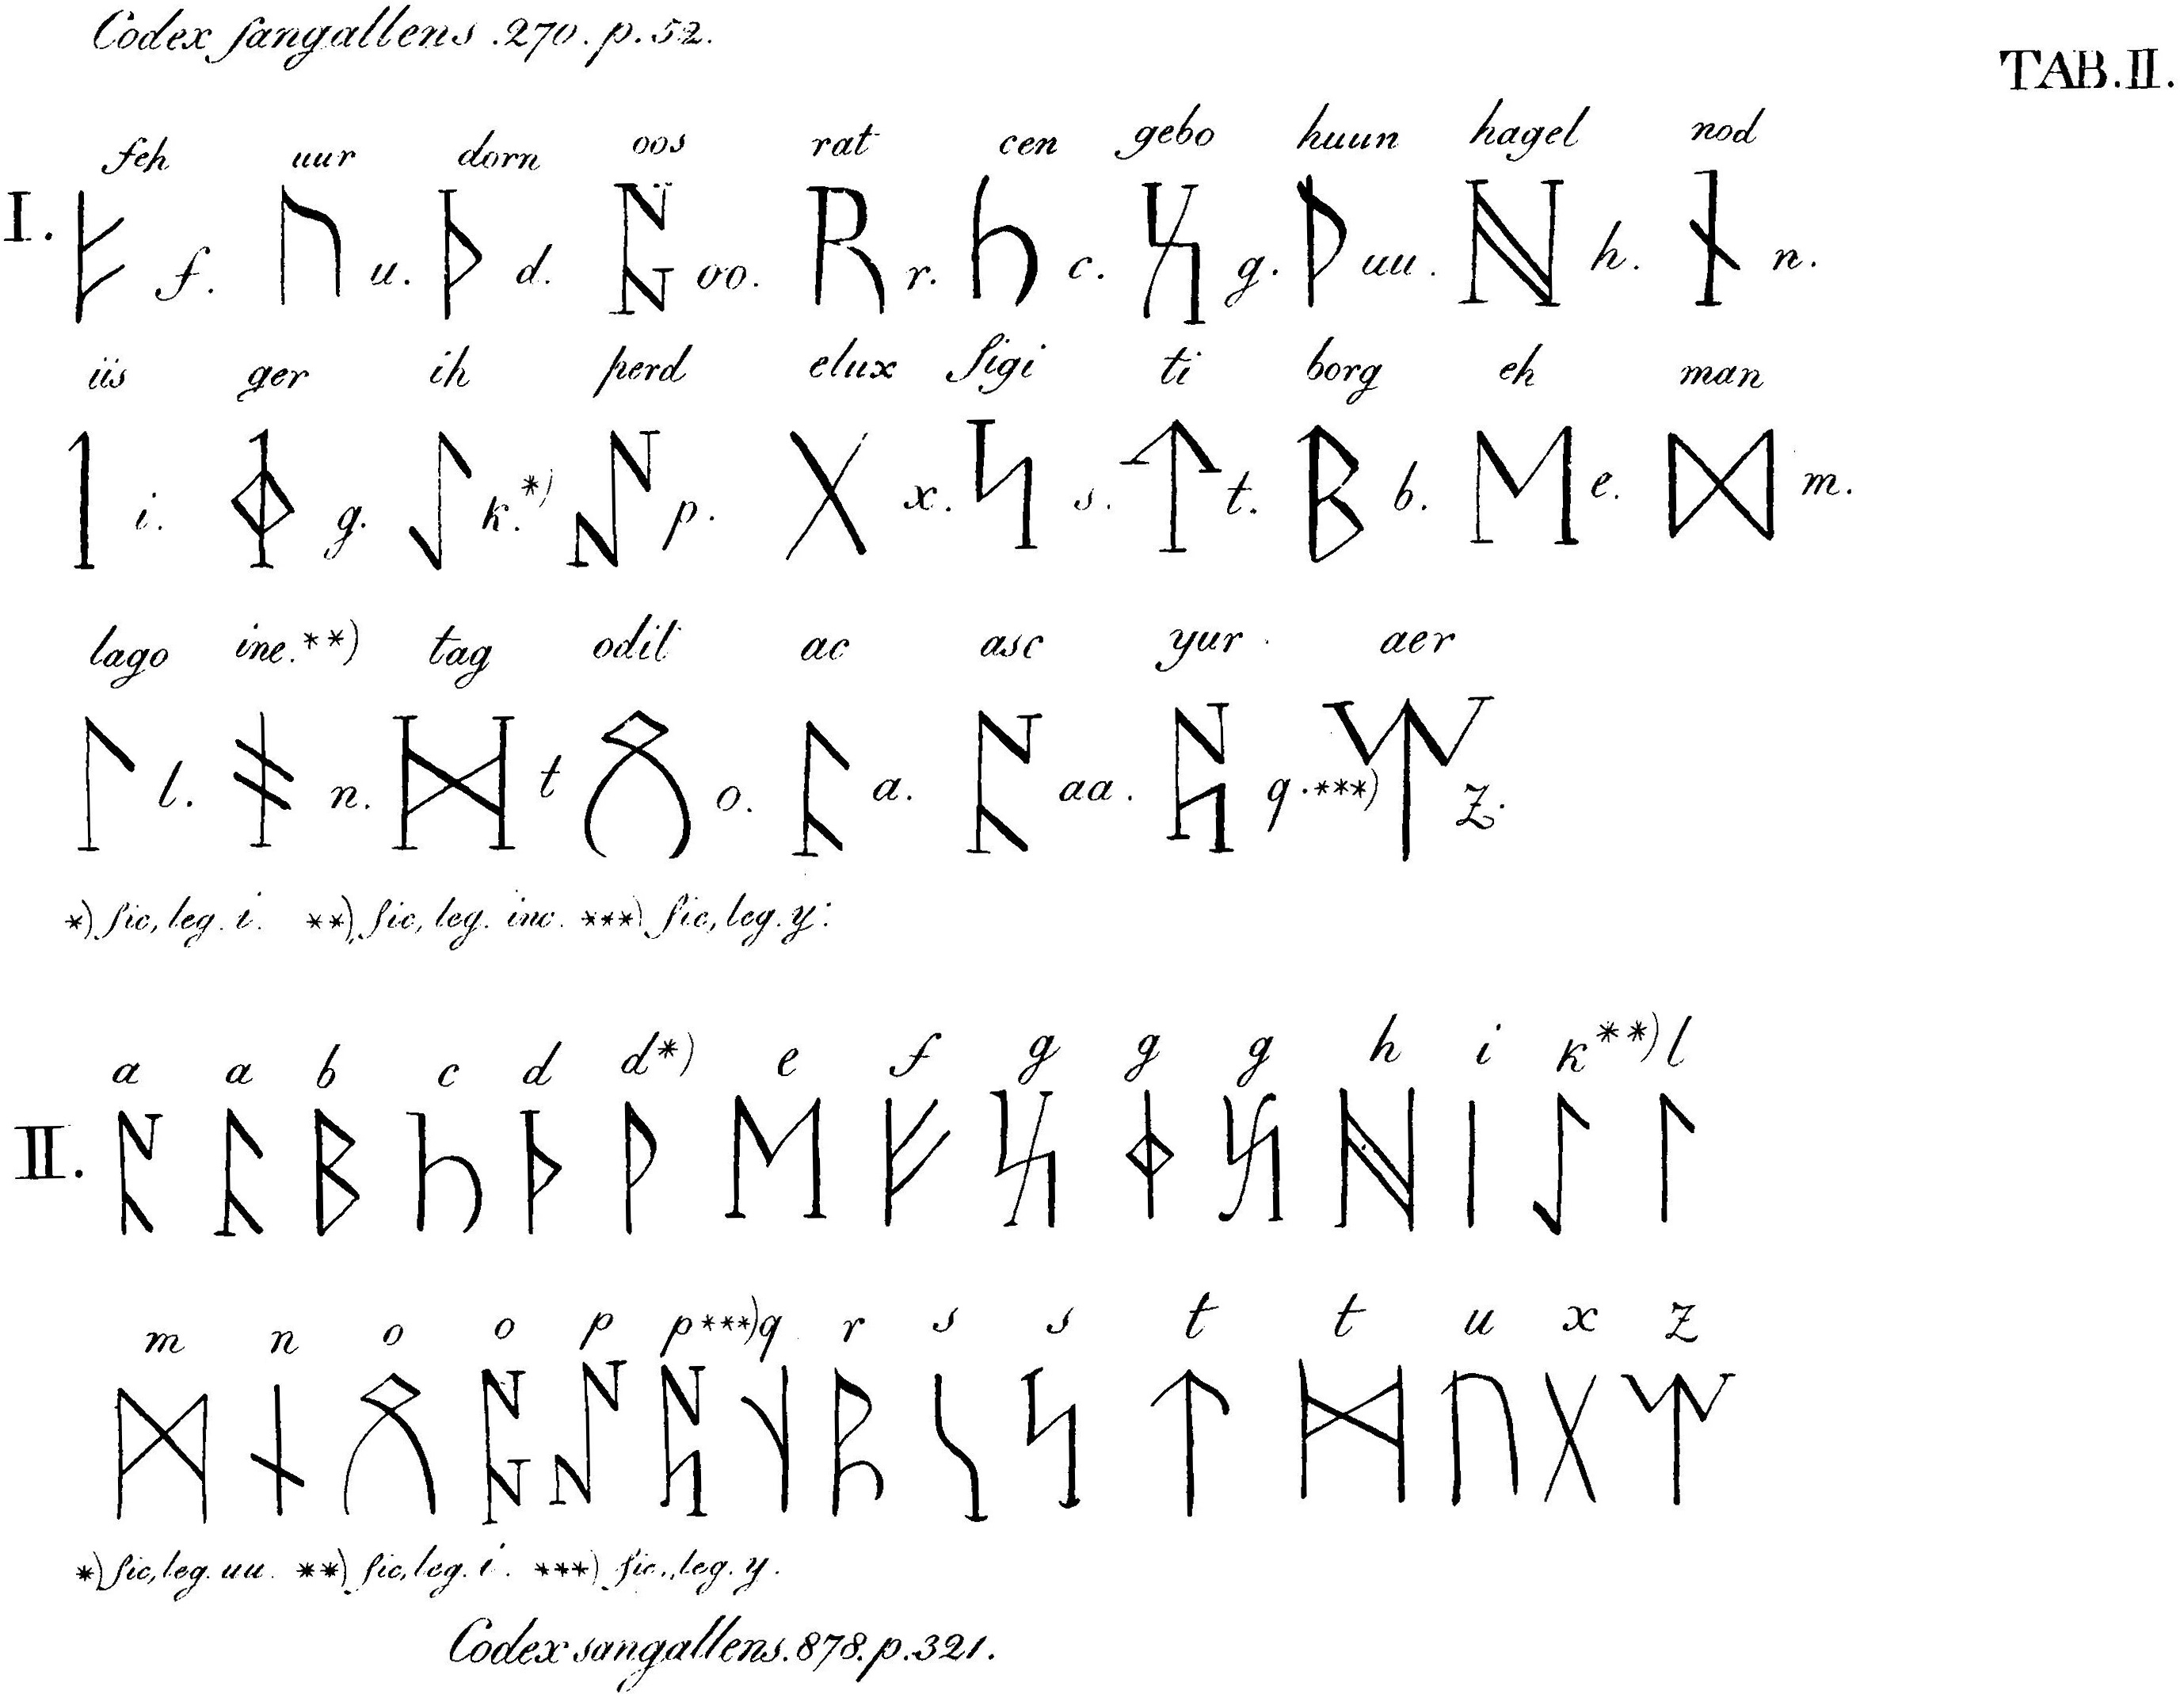 Codex sangallens. 270. p. 52.
TAB. II.
feh uur dorn oos rat cen gebo huun hagel nod
I. ᚠ f. ᚢ u. ᚦ d. ᚩ oo. ᚱ r. ᚳ c. g. ᚹ uu. ᚻ h. ᚾ n.
iis ger ih perd elux sigi ti borg eh man
ᛁ i. ᛄ g. ᛇ k.*) p. x. ᛋ s. ᛏ t. ᛒ b. ᛖ e. ᛞ m.
lago ine.**) tag odil ac asc yur aer
ᛚ l. n. ᛗ t ᛟ o. a. aa. q.***) z.
*) sic, leg. i. **) sic, leg. inc. ***) sic, leg. y:
a a b c d d*) e f g g g h i k**) l
II. ᛒ ᚳ ᚦ ᚹ ᛖ ᚠ ᛄ ᚻ ᛁ ᛇ ᛚ
m n o o p p***) q r s s t t u x z
ᛗ ᚾ ᛟ ᚩ ᚱ ᛋ ᛏ ᛗ ᚢ
*) sic, leg. uu. **) sic, leg. i. ***) sic., leg. y.
Codex sangallens. 878. p. 321.